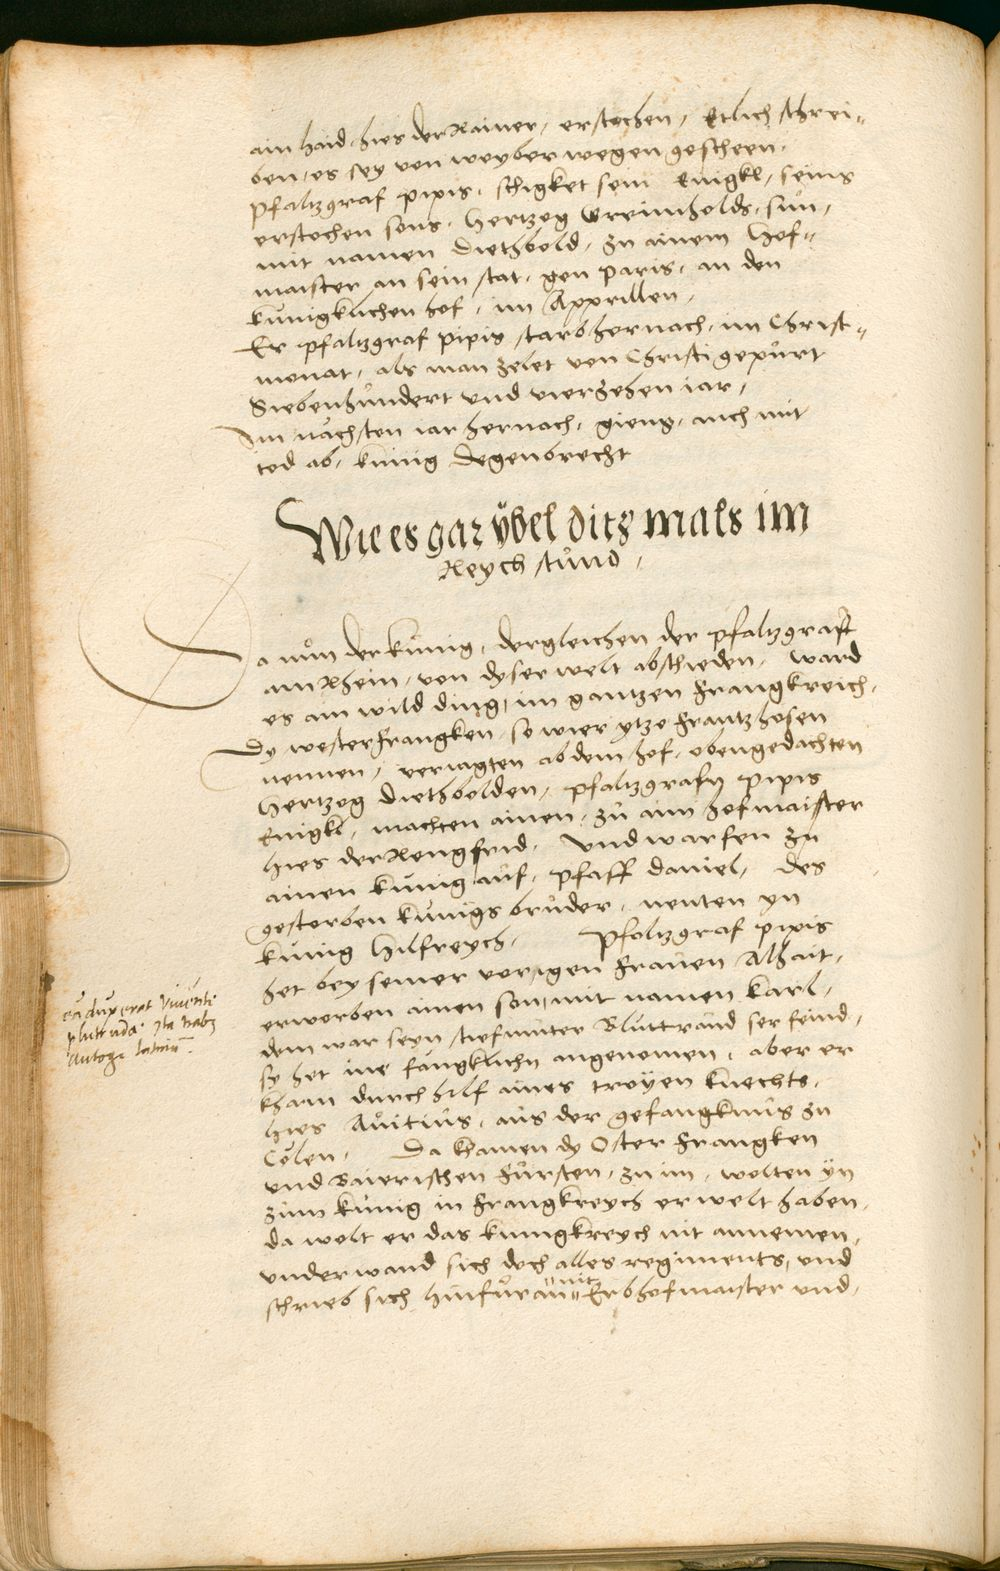 ain haid hies der Rainer, erstochen, Etlich schrei-
ben, es sey von weyber wegen gescheen.
Pfaltzgraf pipis, schigket sein Enigkl, seins
erstochen sons, Hertzog Greimholds, sun,
mit namen Diethbold, zu ainem Hof-
maister an sein stat, gen paris, an den
kunigklichen hof, im Apprillen,
Er pfaltzgraf pipis starb hernach, im Christ-
monat, als man zelet von Christi gepůrt
Siebenhůndert und vierzehen iar,
Im nächsten iar hernach, gieng, auch mit
tod ab, kunig Degenbrecht
Wie es gar ÿbel ditz mals im
Reych stůnd,
Da nůn der kunig, dergleichen der pfaltzgraff
am Rhein, von dyser welt abschieden, ward
es ain wild ding, im gantzen Frangkreich,
Dy wester Frangken, so wier ytze Frantzhosen
nennen, veriagten ab dem hof, obengedachten
Hertzog Diethbolden, pfaltzgrafn pipis
Enigkl, machten ainen, zů aim hofmaister
hies der Rengfrid, Und warfen zu
ainen kunig auf, pfaff daniel, des
gestorben kunigs brůder, nenten yn
kunig Hilfreych, Pfaltzgraf pipis
het bey seiner vorigen Frauen Alhait,
erworben ainen son, mit namen Karl,
dem war seyn stiefmuter Bluttraud ser feind,
sy het ine fangklichn angenomen, aber er
kham durch hilf aines troyen knechts,
hies Auitius, aus der gefangknus zu
Cölen, Da khamen dy Oster Frangken
und Baierischen Fürsten, zu im, wolten ÿn
zum kunig in Frangkreych erwelt haben,
da wolt er das kunigkreych nit annemen,
underwand sich doch alles regiments, und
schrieb sich hinfůran nit Erbhofmaister und,
ea duxerat viuenti
plutruda